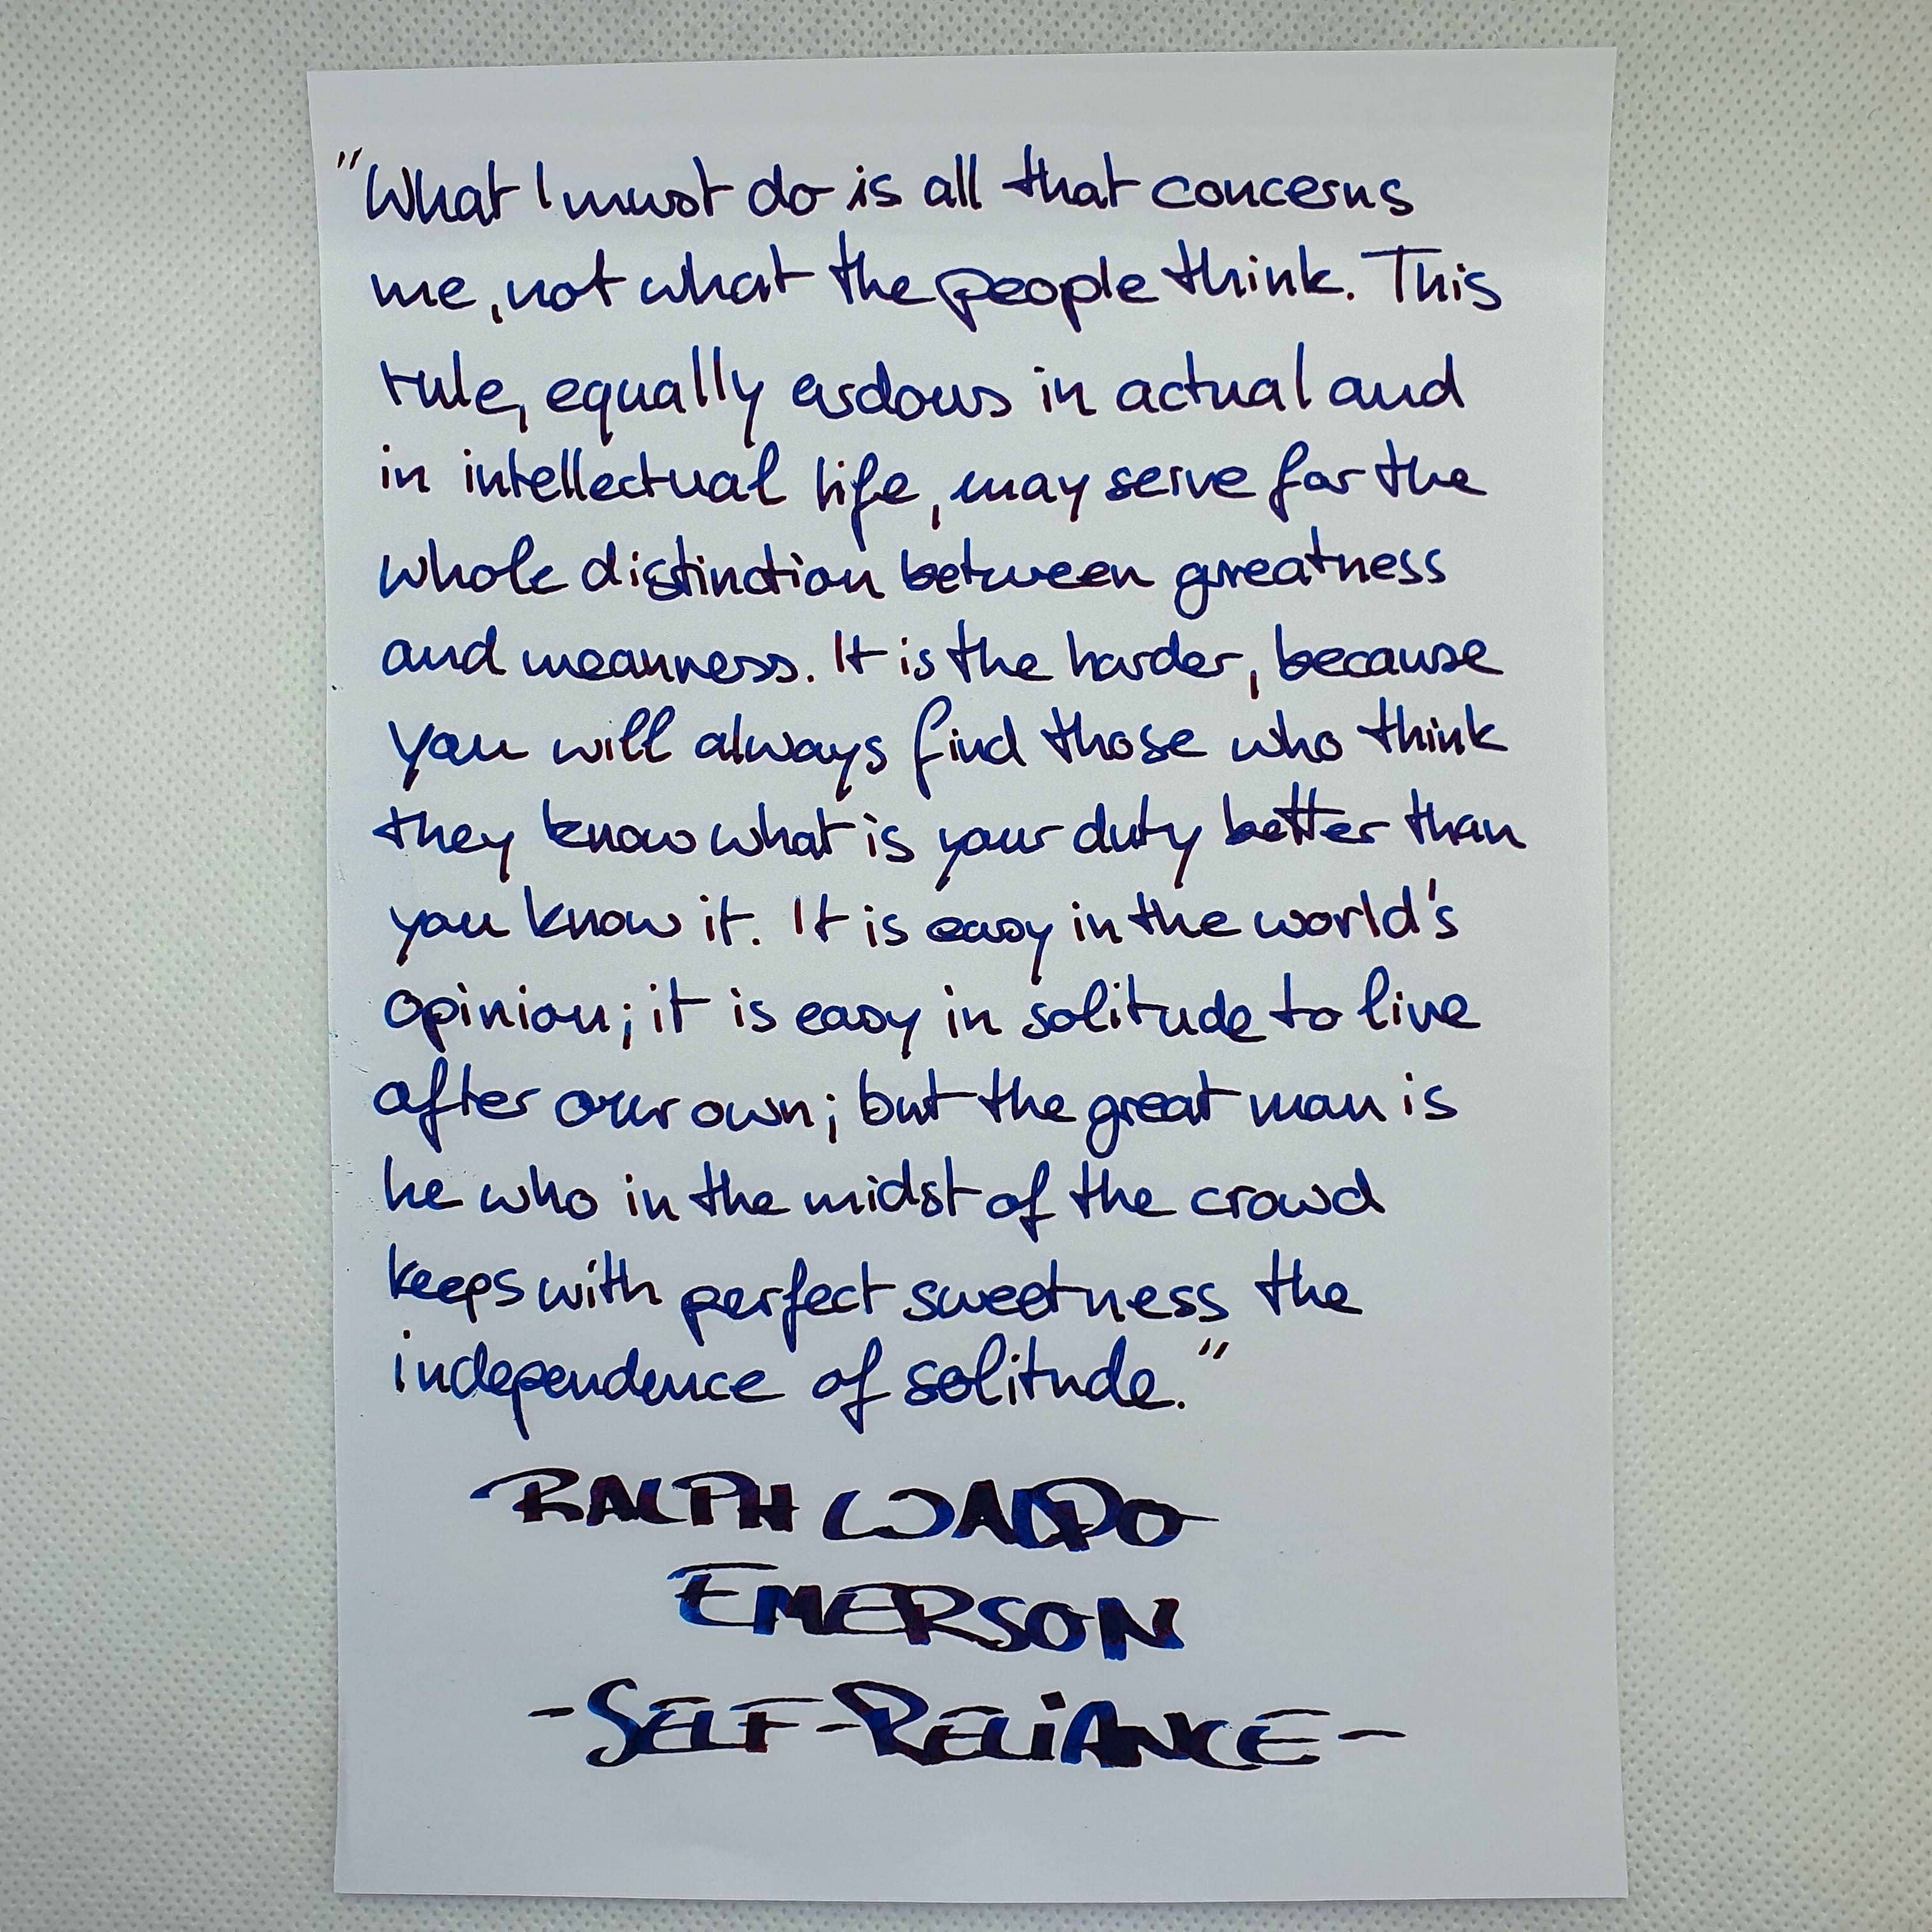 "What I must do is all that concerns
me, not what the people think. This
rule, equally ardous in actual and
in intellectual life, may serve for the
whole distinction between greatness
and meanness. It is the harder, because
you will always find those who think
they know what is your duty better than
you know it. It is easy in the world's
opinion; it is easy in solitude to live
after our own; but the great man is
he who in the midst of the crowd
keeps with perfect sweetness the
independence of solitude."
RALPH WALDO
EMERSON
-SELF-RELiANCE-